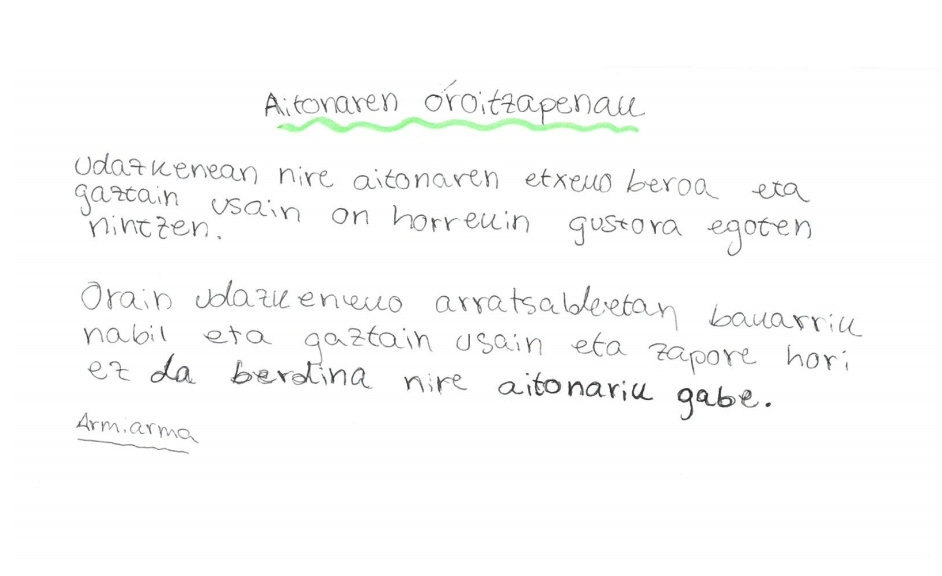 Aitonaren oroitzapenak
Udazkenean nire aitonaren etxeko beroa eta
gaztain usain on horrekin gustora egoten
nintzen.
Orain udazkeneko arratsaldeetan bakarrik
nabil eta gaztain usain eta zapore hori
ez da berdina nire aitonarik gabe.
Armiarma